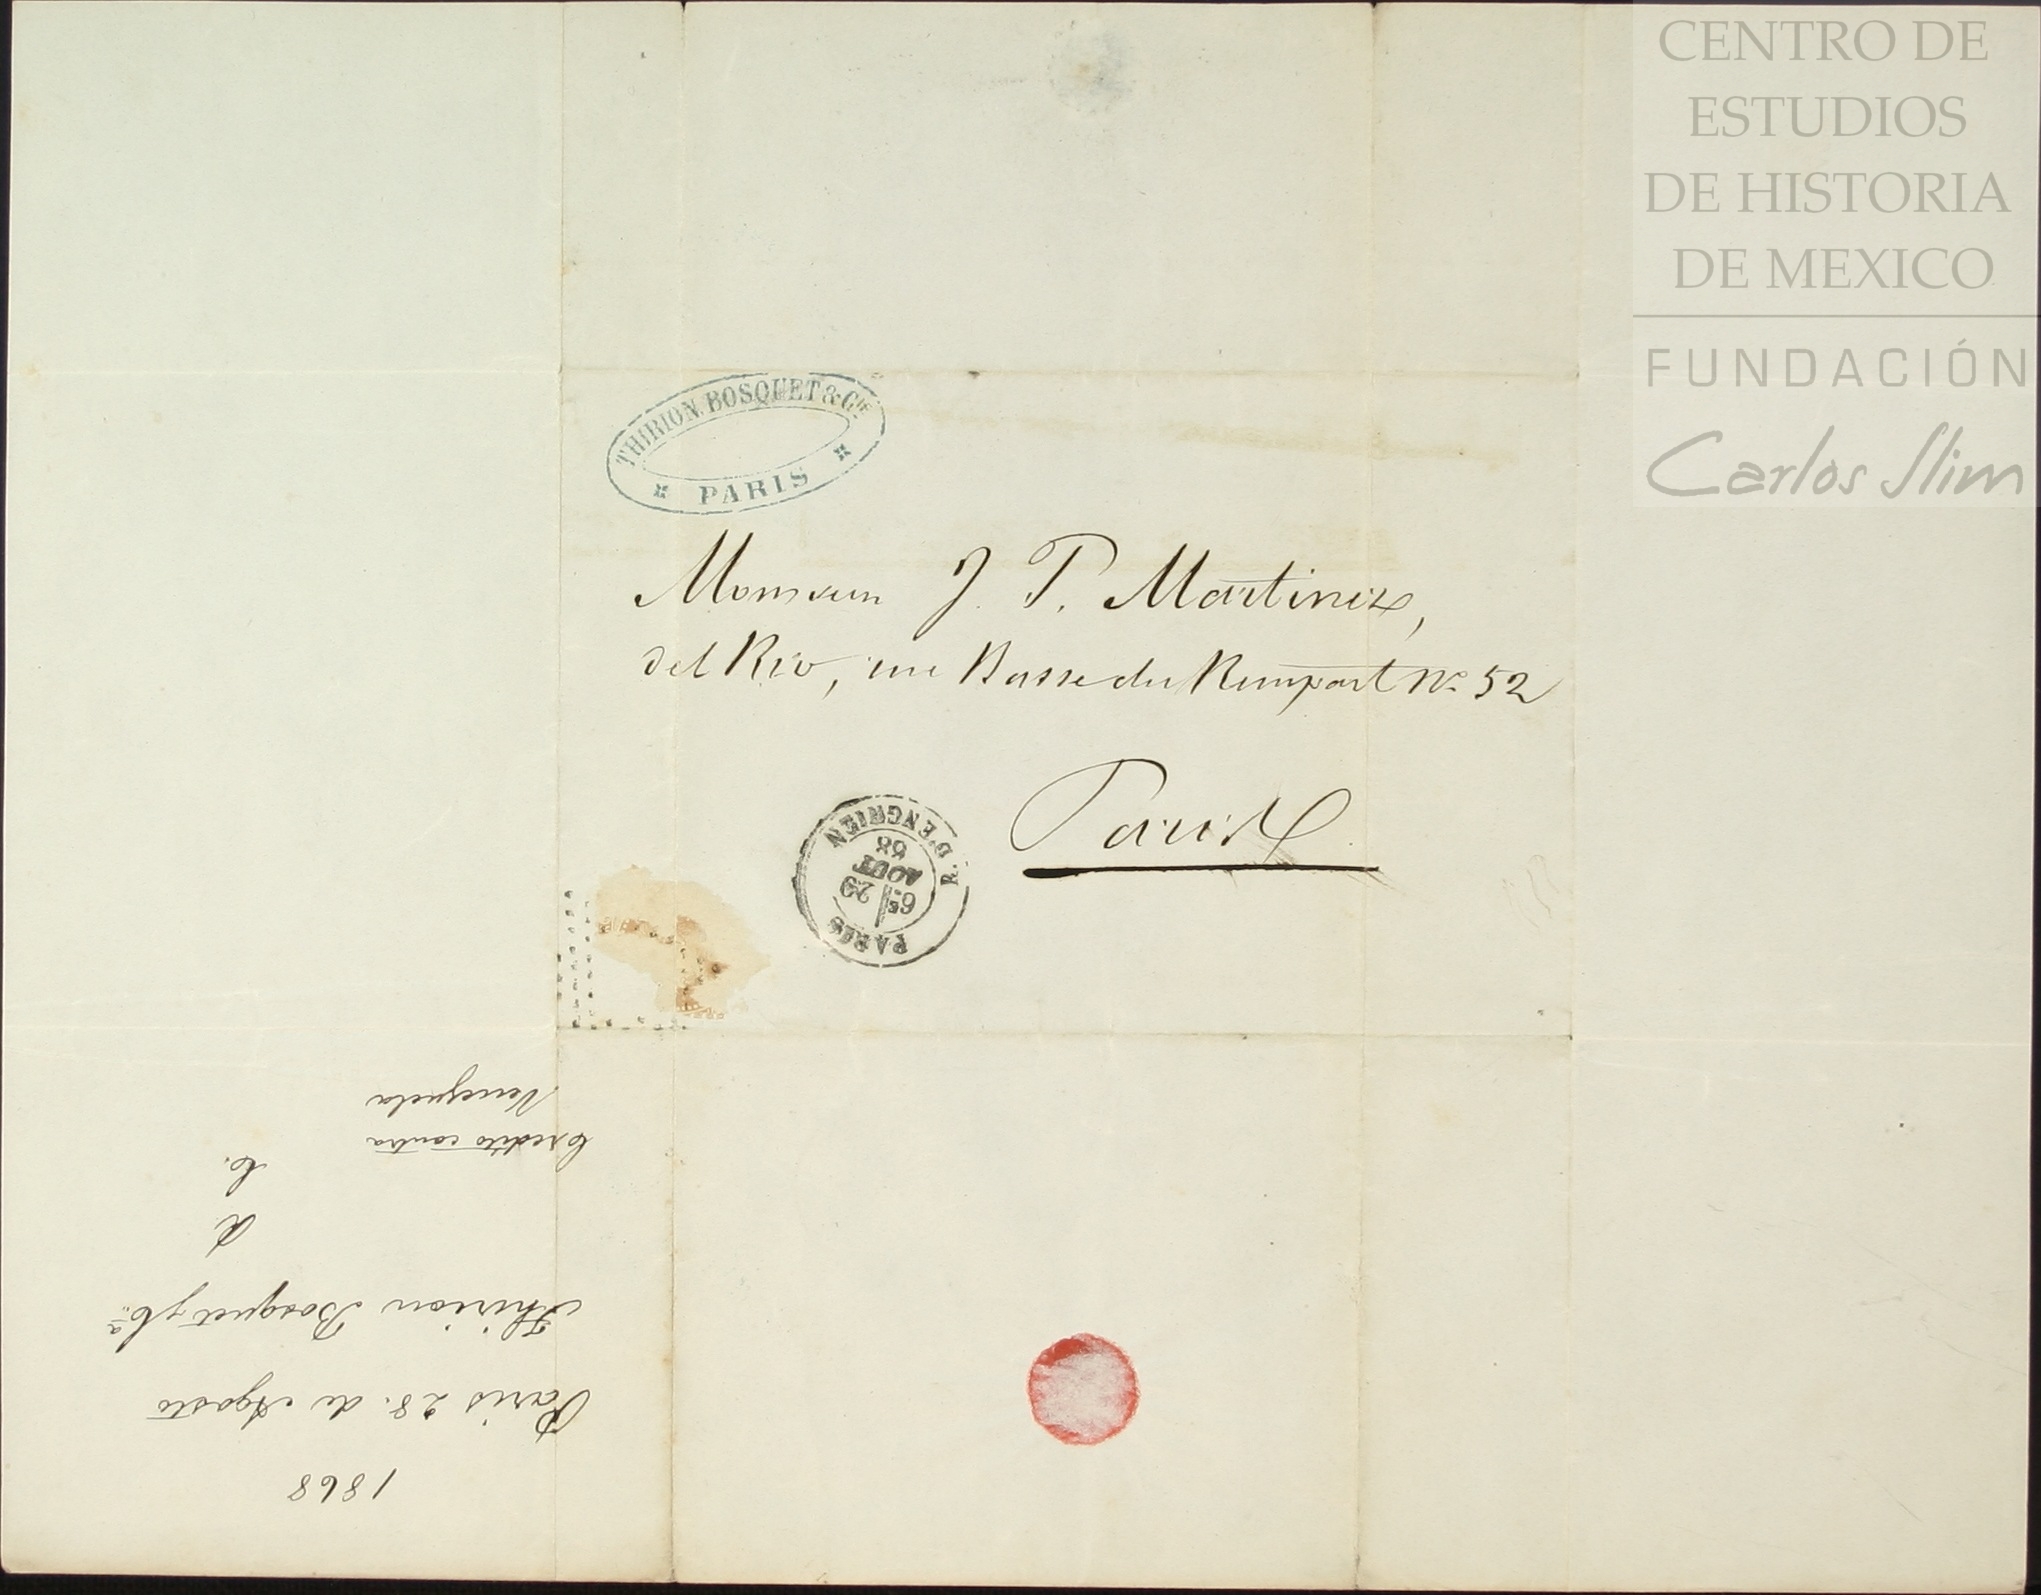 CENTRO DE
ESTUDIOS
DE HISTORIA
DE MEXICO
FUNDACIÓN
Carlos Slim
THIRION, BOSQUET & Cie
PARIS
Monsieur J. P. Martinez,
del Rio, rue Basse du Rempart No 52
Paris
PARIS
6E 29
AOUT
68
R. D'ENGHIEN
1868
Paris 28. de Agosto
Thirion Bosquet y Ca
R
C.
Credito contra
Venezuela